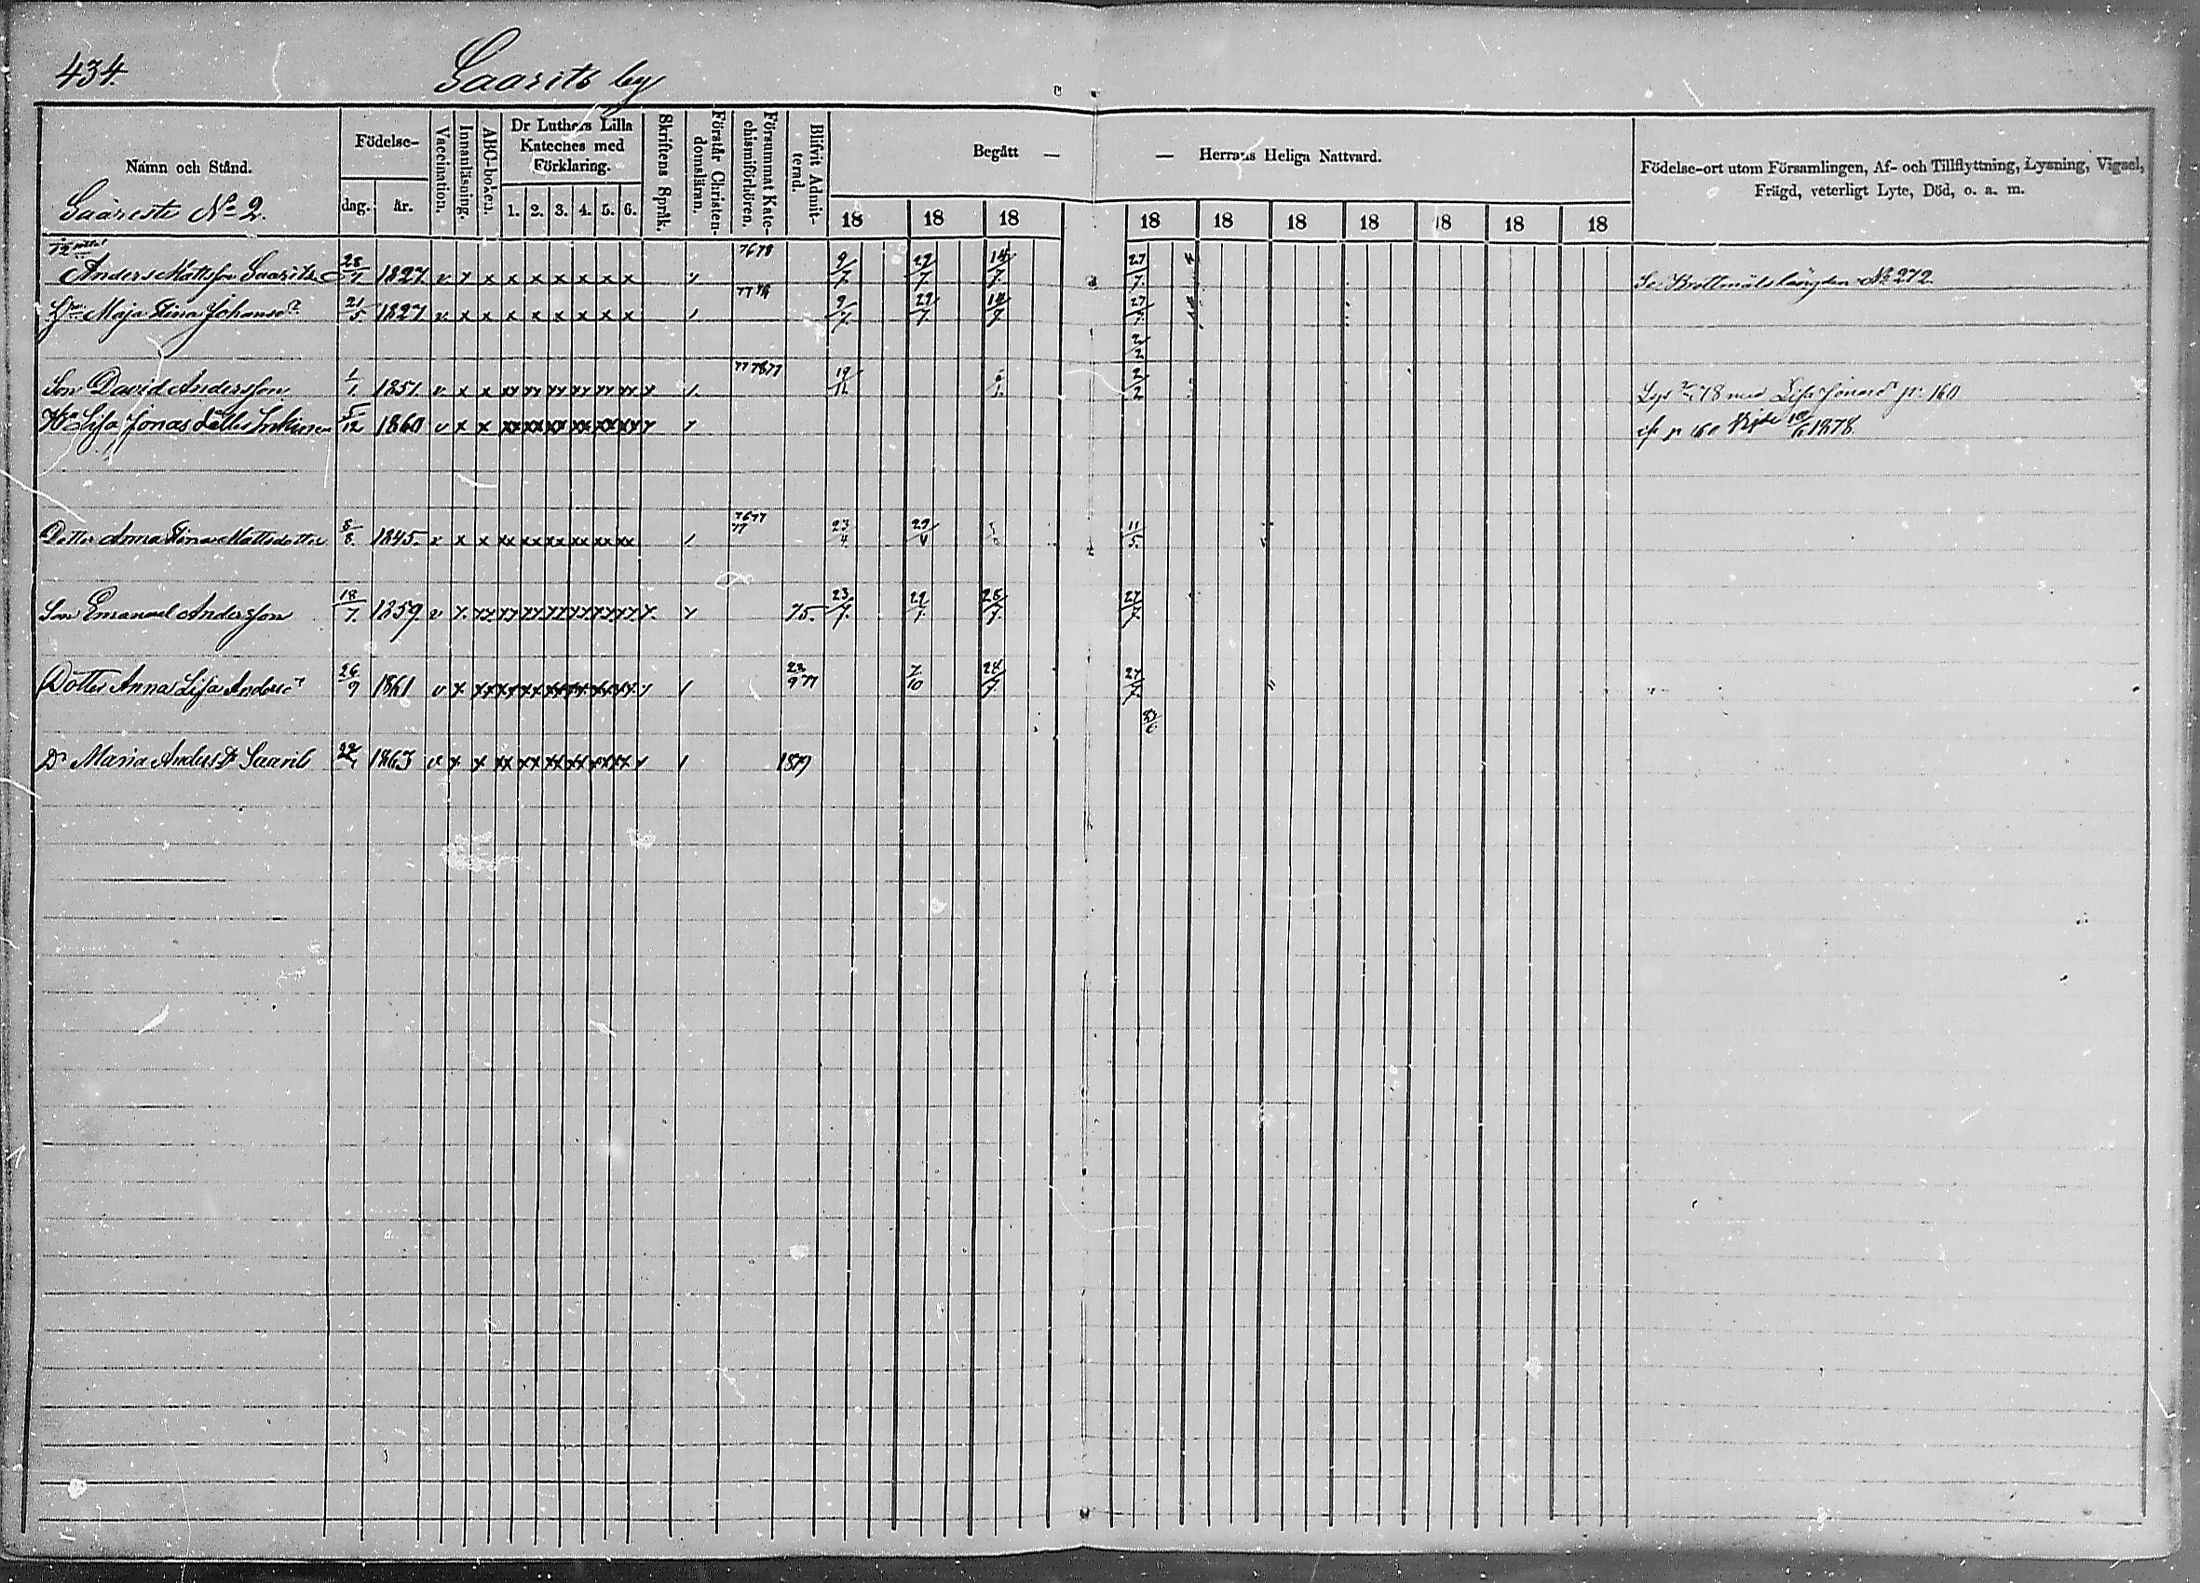 434.
Saarits by
Namn och Stånd.
Födelse-
dag.
år.
Vaccination.
Innanläsning.
ABC-boken.
Dr Luthers Lilla
Kateches med
Förklaring.
1. 2. 3. 4. 5. 6.
Skriftens Språk.
Förstår Christen-
domsläran.
Försummat Kate-
chismiförhören.
Blifvit Admit-
terad.
Begått —
— Herrans Heliga Nattvard.
18 18 18 18 18 18 18 18 18 18
Födelse-ort utom Församlingen, Af- och Tillflyttning, Lysning, Vigsel,
Frägd, veterligt Lyte, Död, o. a. m.
No 2.
7678
Anders Mattsson Saarits 1827 v x x x x x x x x 9/7. 29/7. 14/7. 27/7. No 272.
Maja Stina Johansd:r 21/5 1827 v x x x x x x x x 9/7. 29/7. 14/7. 27/7.
2/2
777877
Son David Andersson 1/1. 1851. v x x xx xx xx xx xx xx 19/11. 2/2 78 med Lisa Jonasd:r p: 160
Lisa Jonasdotter 12 1860 v x x xx xx xx xx xx xx p 160 1878.
7677
77
Dotter Anna Stina Mattsdotter 8/8. 1845. v x x xx xx xx xx xx xx 23/4. 29/ 11/5.
Son Emanuel Andersson 18/7. 1859. v x. xx. xx xx xx xx xx xx 75. 23/7. 29/7. 27/7.
Dotter Anna Lisa Andersd:r 26/9 1861 v x xx xx xx xx xx xx xx 23/9 77 7/10 24/7. 27/7.
D:r Maria Anders D:r Saarits 1863 v x x xx xx xx xx xx xx 1879